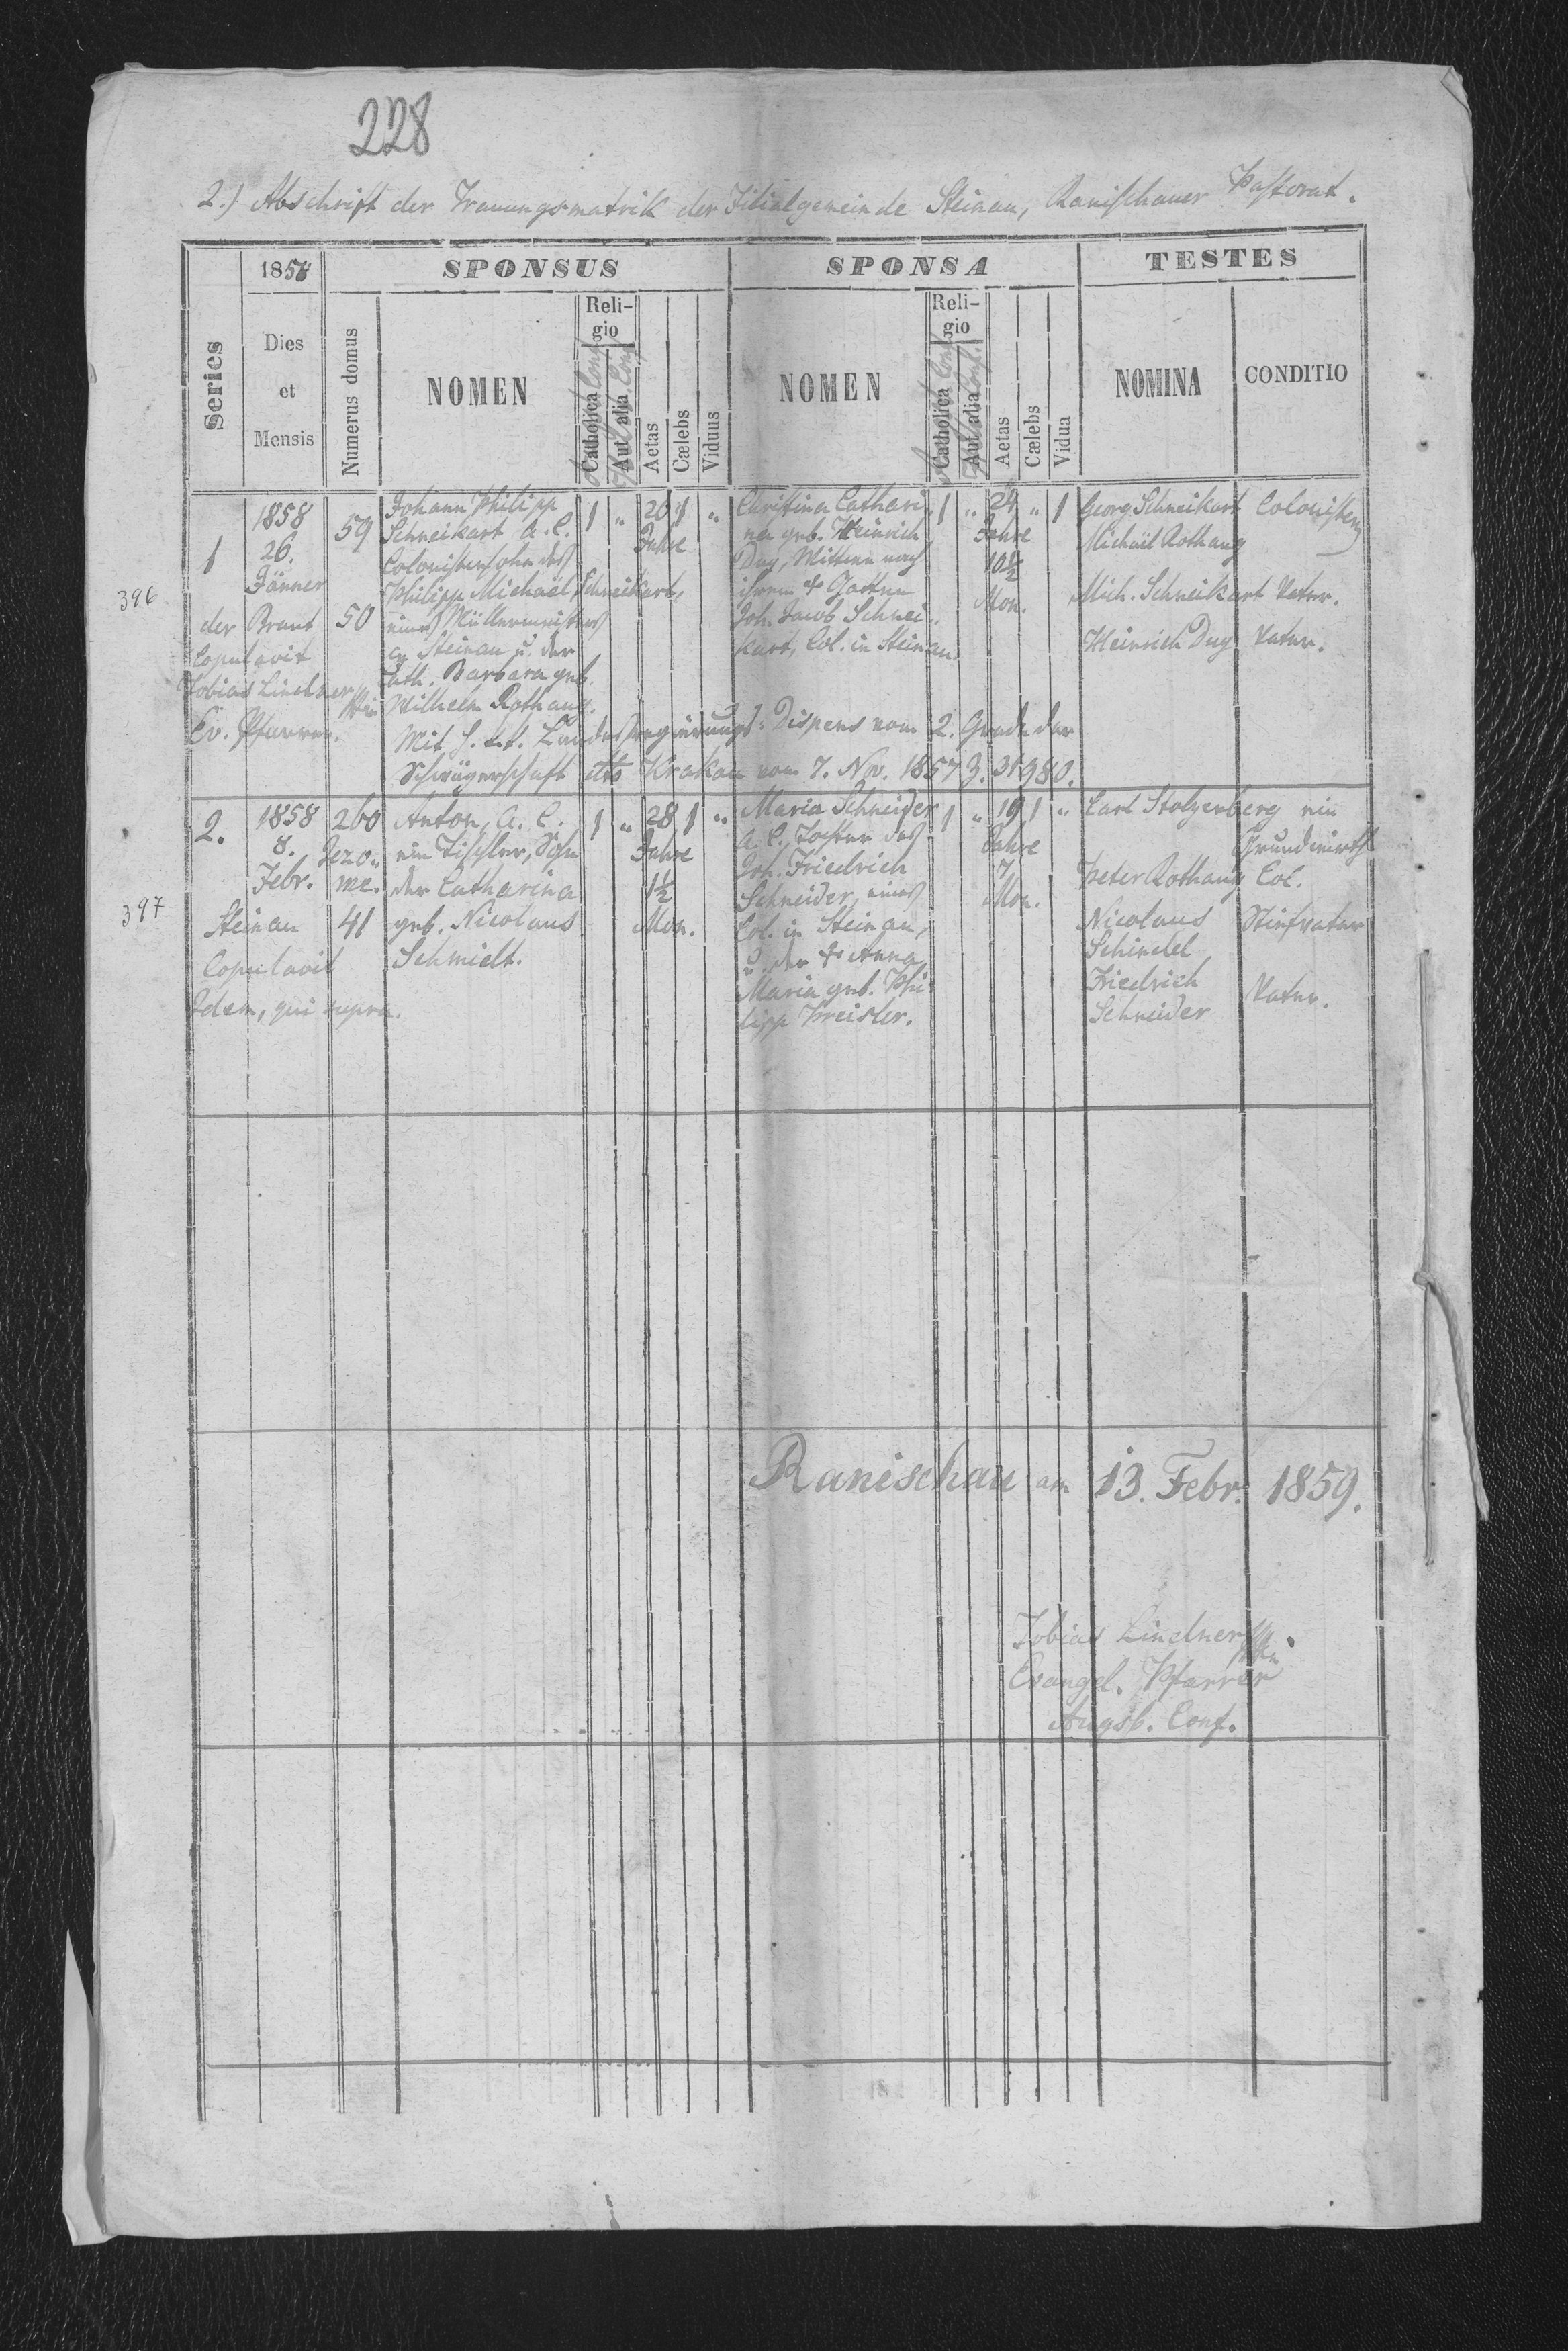 228
2.) Abschrift der Trauungsmatrik der Filialgemeinde Steinau, Ranischauer Pastorat.
Series
1858
Dies
et
Mensis
Numerus domus
SPONSUS
NOMEN
Reli-
gio
Catholica
Aut alia
Conf.
Aetas
Cælebs
Viduus
SPONSA
NOMEN
Reli-
gio
Catholica
Aut alia
Conf.
Aetas
Cælebs
Vidua
TESTES
NOMINA
CONDITIO
396
1
1858
26.
Jänner
der Braut
Copulavit
Tobias Lindner
Ev. Pfarrer.
59
50
Johann Philipp
Schneikart, A. C.
Colonistensohn des
Philipp Michaël Schneikart,
eines Müllermeisters
in Steinau u. der
Cath. Barbara geb.
Wilhelm Rothaug.
1
"
26
Jahre
1
"
Christina Cathari-
na geb. Heinrich
Duy, Wittwe nach
ihrem + Gatten
Joh. Jacob Schnei-
kart, Col. in Steinau.
1
"
24
Jahre
10½
Mon.
"
1
Georg Schneikart Colonisten
Michaël Rothaug
Mich. Schneikart Vater.
Heinrich Duy Vater.
Mit h. k. k. Landesregierungs-Dispens vom 2. Grade der
Schwägerschaft dto Krakau vom 7. Nov. 1857 Z. 31980.
397
2.
1858
8.
Febr.
Steinau
Copulavit
Idem, qui supra.
260
Jezo-
we.
41
Anton, A. C.
ein Tischler, Sohn
der Catharina
geb. Nicolaus
Schmidt.
1
"
28
Jahre
1½
Mon.
1
"
Maria Schneider
A. C. Tochter des
Joh. Friedrich
Schneider, eines
Col. in Steinau,
u. der + Anna
Maria geb. Phi-
lipp Kreisler.
1
"
19
Jahre
7
Mon.
1
"
Carl Stolzenberg ein
Grundwirth
Peter Rothaug Col.
Nicolaus Stiefvater
Schindel
Friedrich Vater.
Schneider
Ranischau am 13. Febr. 1859.
Tobias Lindner
Evangel. Pfarrer
Augsb. Conf.